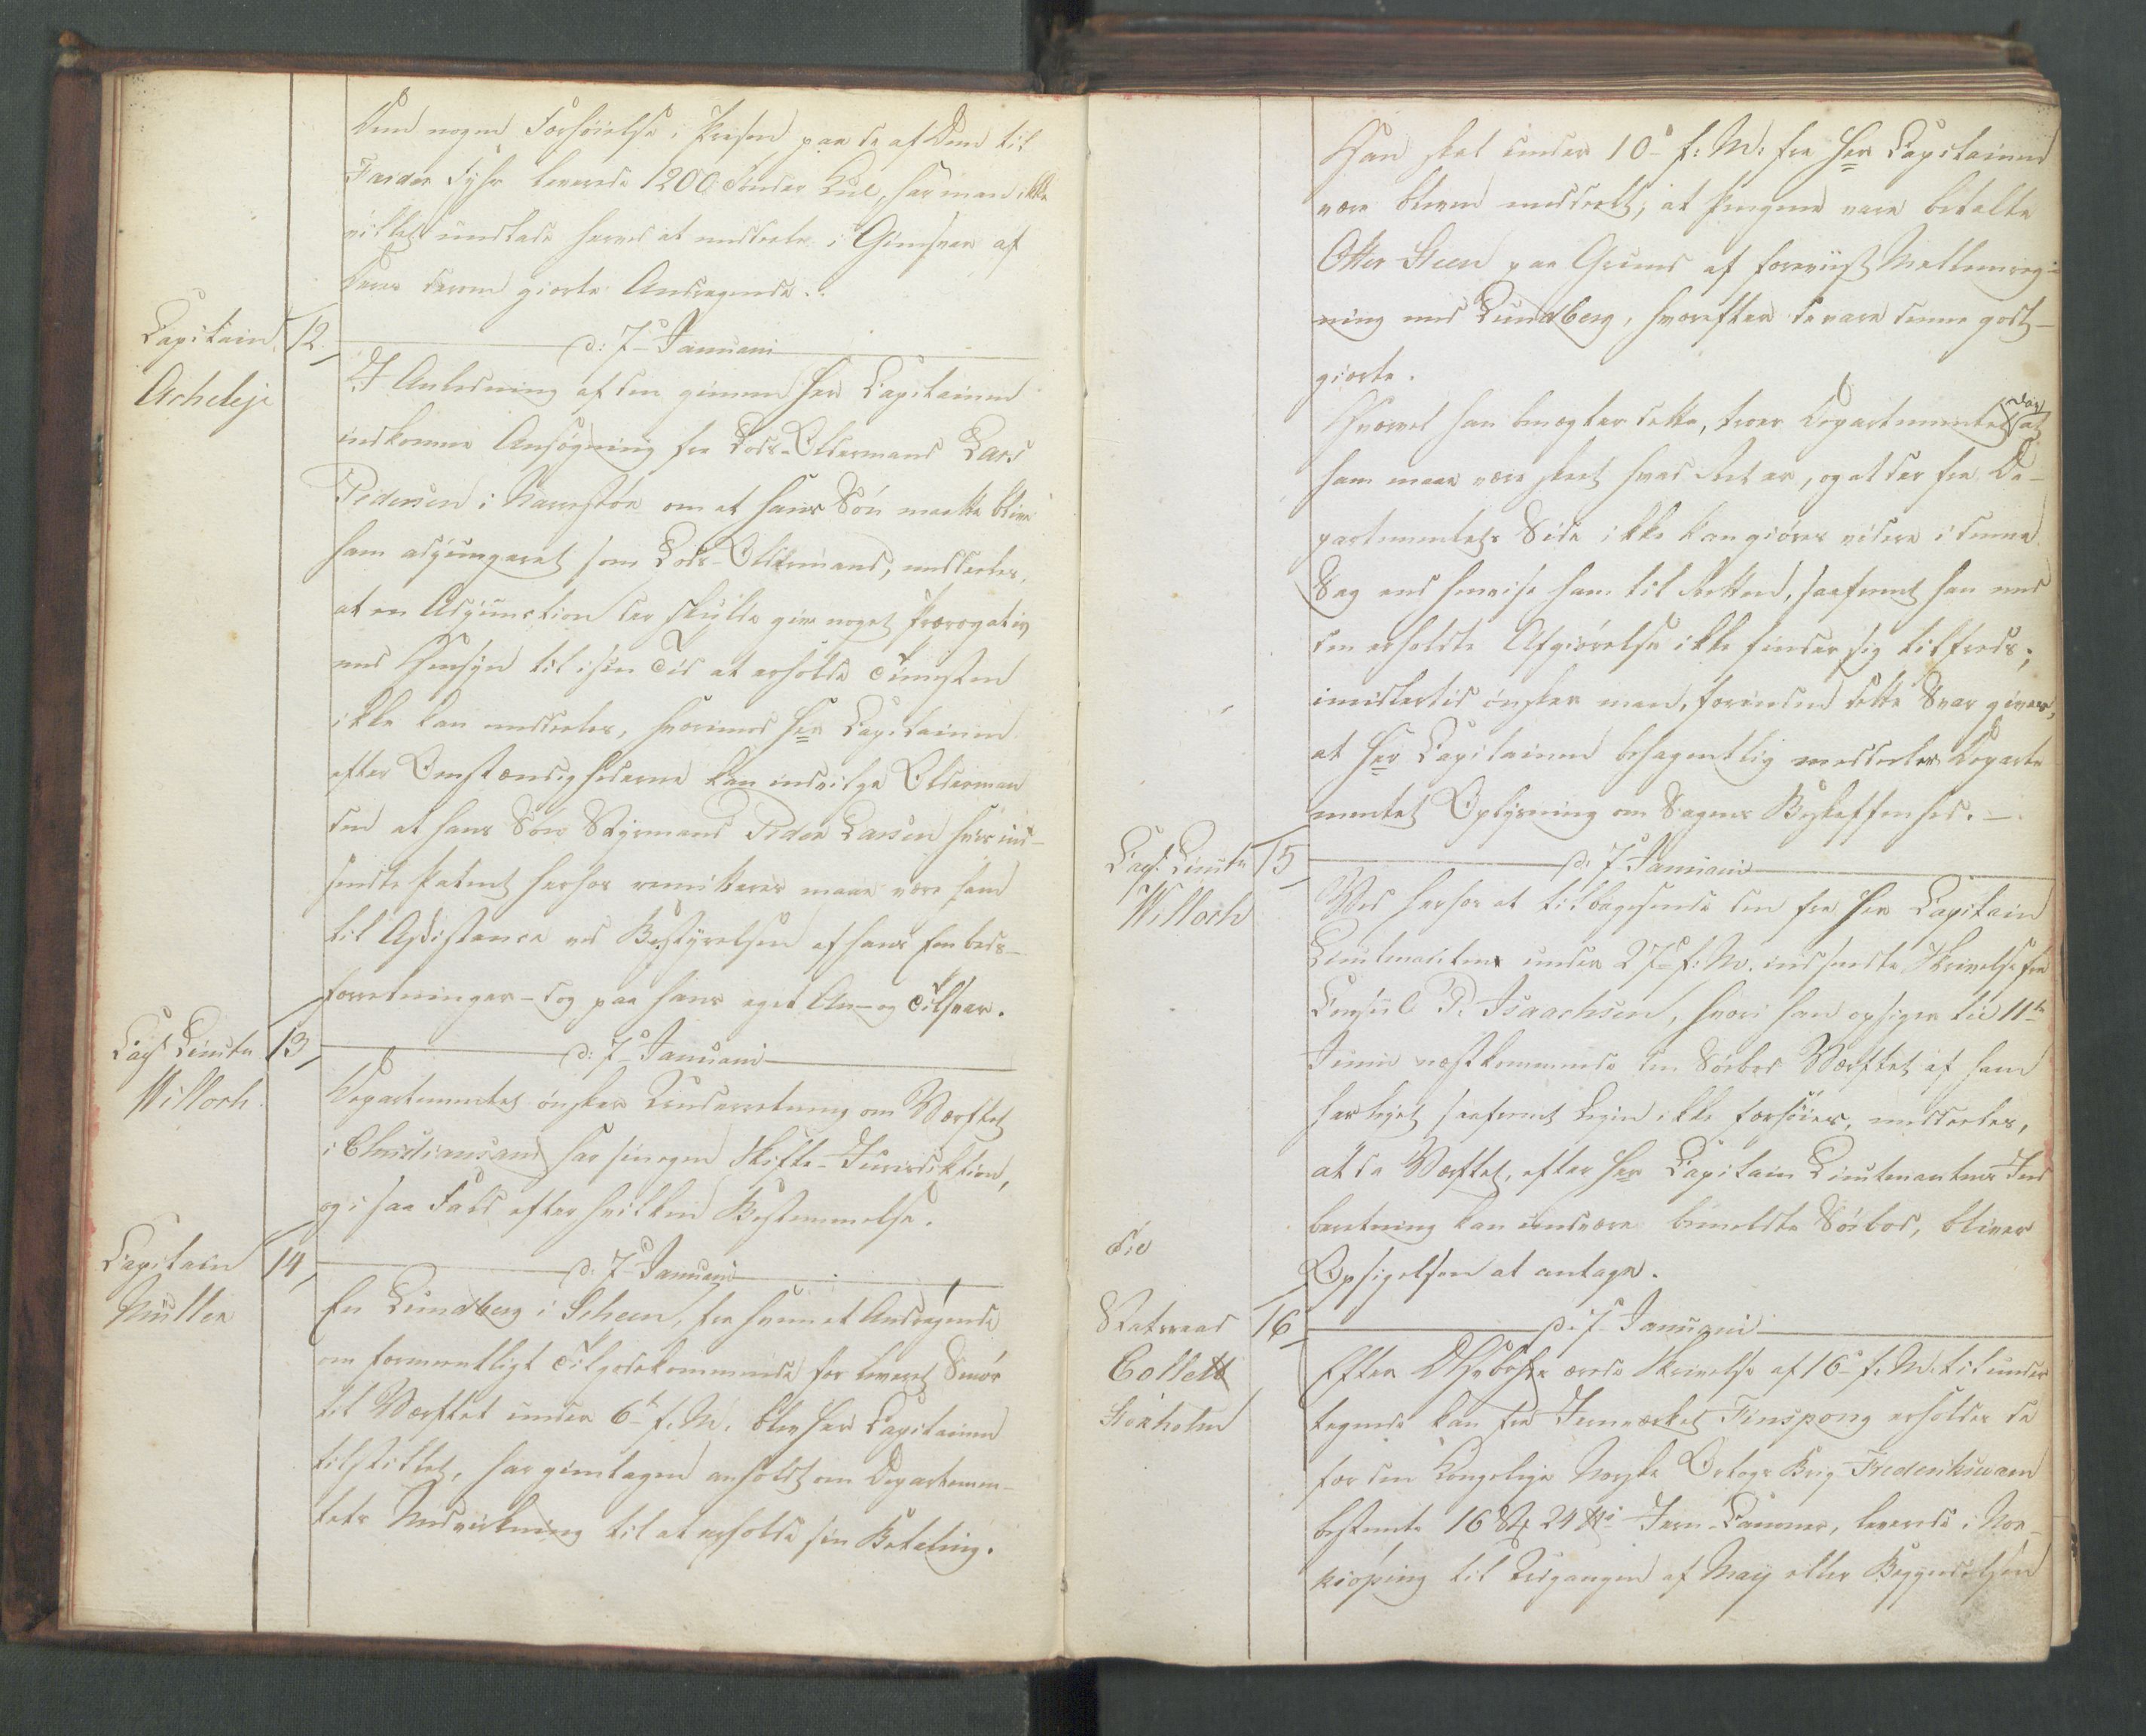 Dem nogen Forhöielse i Prisen paa de af Dem til
Færder Fyhr leverede 1200 Tönder Kul, har man ikke
villet undlade herved at meddele i Giensvar af
Deres derom giorte Andragende.
Capitain 12. d: 7de Januari
Acheleje
I Anledning af den giennem Herr Capitainen
indkomne Ansögning fra Lods-Oldermand Lars
Pedersen i Narrestöe om at hans Sön maatte blive
ham adjungeret som Lods-Oldermand, meddeeles,
at en Adjunction der skulde give noget Prærogativ
med Hensyn til i sin Tid at erholde Tienesten
ikke kan meddeeles, hvorimod Herr Capitainen
efter Omstændighederne kan indvilge Olderman
den at hans Sön Styrmand Peder Larsen hvis ind-
sendte Patent herhos remitteres maae være ham
til Assistance ved Bestyrelsen af hans Embeds-
forretninger - dog paa hans eget An- og Tilsvar.
Capt. Lieutn 13 d: 7de Januari
Willoch.
Departementet önsker Underretning om Værftet
i Christiansand har sin egen Skifte-Jurisdiktion,
og i saa Fald efter hvilken Bestemmelse.
Capitain 14 d: 7de Januari
Müller
En Lundberg i Scheen, fra hvem et Andragende
om formentligt Tilgodekommende for leveret Smör
til Værftet under 6te f. M. blev Herr Capitainen
tilstillet, har gientagen anholdt om Departemen-
tets Medvirkning til at erholde sin Betaling.
Han skal under 10de f: M: fra Herr Capitainen
være bleven meddeelt, at Pengene vare betalte
Otter Steen paa Grund af foreviist Mellemreg-
ning med Lundberg, hvorefter de vare denne godt-
giorte.
Hvorvel han benægter dette, troer Departementet dog at
ham maae være skeet hvad Ret er, og at der fra De-
partementets Side ikke kan giöres videre i denne
Sag end henvise ham til Retten, saafremt han med
den erholdte Afgiörelse ikke finder sig tilfreds;
imidlertid önsker man, forinden dette Svar gives,
at Herr Capitainen behagentlig meddeeler Departe
mentet Oplysning om Sagens Beskaffenhed. -
Capt. Lieutn 15 d: 7 Januari
Willoch
Ved herhos at tilbagesende den fra Herr Capitain
Lieutnanten under 27de f: M. indsendte Skrivelse fra
Consul P. Isaachsen, hvori han opsiger til 11te
Junii næstkommende den Söebod Værftet af ham
har leiet saafremt Leien ikke forhöies, meddeeles,
at da Værftet, efter Herr Capitain Lieutenantens Ind
beretning kan undvære bemeldte Söebod, bliver
Opsigelsen at antage.
Til
Statsraad 16 d: 7 Januari
Collett
Stokholm
Efter ærede Skrivelse af 16de f. M. til under
tegnede kan fra Jernværket Finspong erholdes de
for den Kongelige Norske Orlogs Brig Frederiksværn
bestemte 16 St 24 Jern-Canoner, leverede i Nor-
kiöping til Udgangen af May eller Begyndelsen